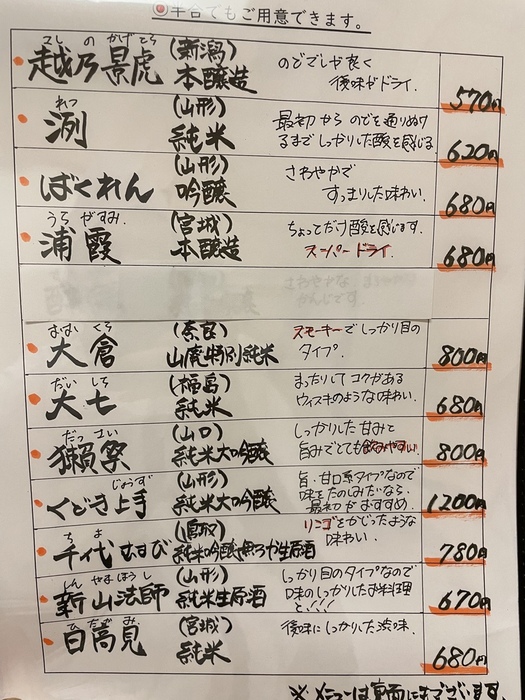 ◉半合でもご用意できます。
こし の かげとら
越乃景虎
(新潟)
本醸造
のどごしが良く
後味がドライ.
570円
れつ
洌
(山形)
純米
最初から のどを通りぬけ
るまで しっかりした酸を感じる
620円
ばくれん
(山形)
吟醸
さわやかで
すっきりした味わい.
680円
うら がすみ
浦霞
(宮城)
本醸造
ちょっとだけ酸を感じます.
スーパードライ.
680円
さわやかな
かんじです.
おお くら
大倉
(奈良)
山廃特別純米
スモーキーで しっかり目の
タイプ.
800円
だい しち
大七
(福島)
純米
まったりしてコクがある
ウィスキーのような味わい.
680円
だっ さい
獺祭
(山口)
純米大吟醸
しっかりした甘みと
旨みでとても飲みやすい
800円
じょうず
くどき上手
(山形)
純米大吟醸
旨・甘口系タイプなので
味をたのしみたいなら
最初がおすすめ.
1200円
ち よ
千代むすび
(鳥取)
純米吟醸無ろか生原酒
リンゴをかじったような
味わい.
780円
しん やまほうし
新山法師
(山形)
純米生原酒
しっかり目のタイプなので
味のしっかりしたお料理
と!!!
670円
ひたかみ
日高見
(宮城)
純米
後味にしっかりした渋味.
680円
※メニューは裏面にもございます.